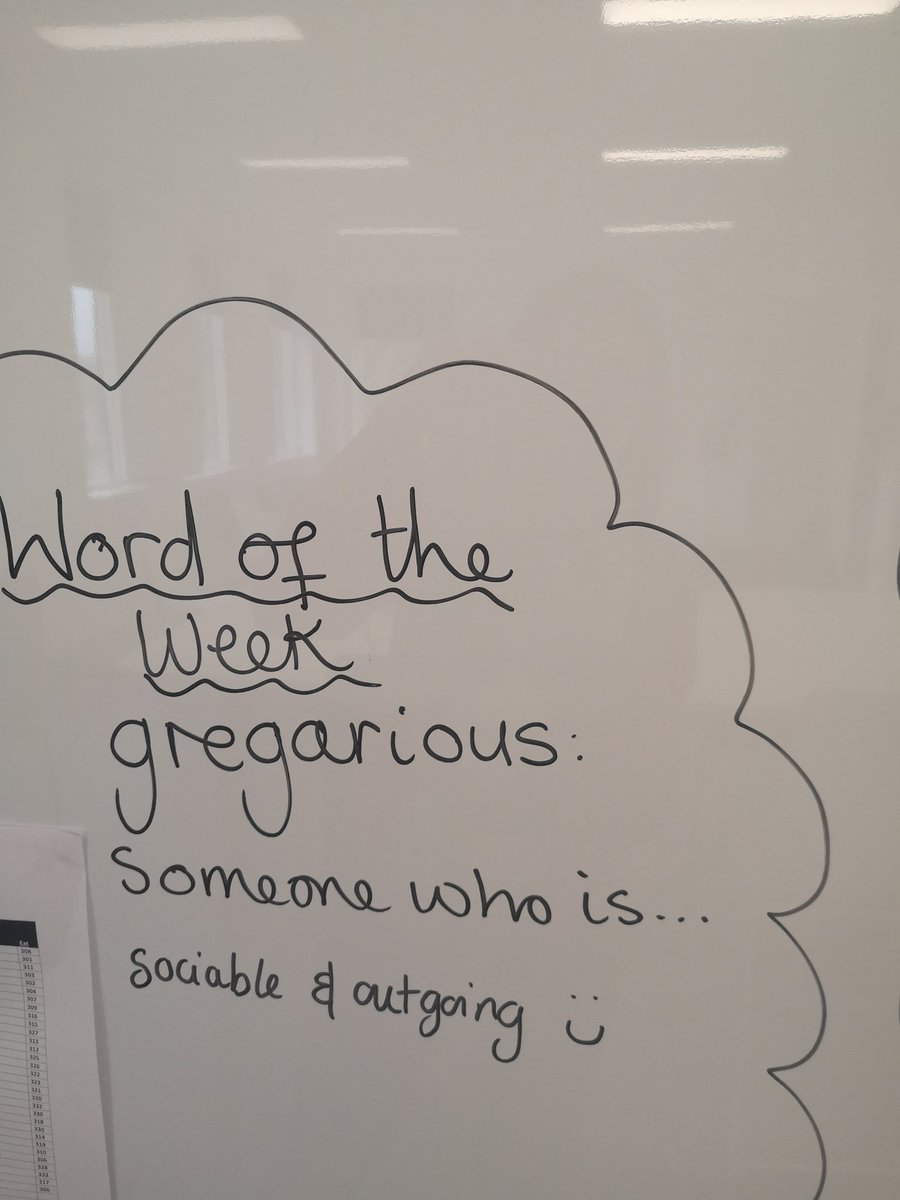 Word of the
Week
gregarious:
Someone who is...
sociable & outgoing :)
Ext
308
301
311
303
302
304
307
309
316
315
327
313
312
325
326
322
323
321
320
332
330
318
330
314
319
310
306
328
333
317
306